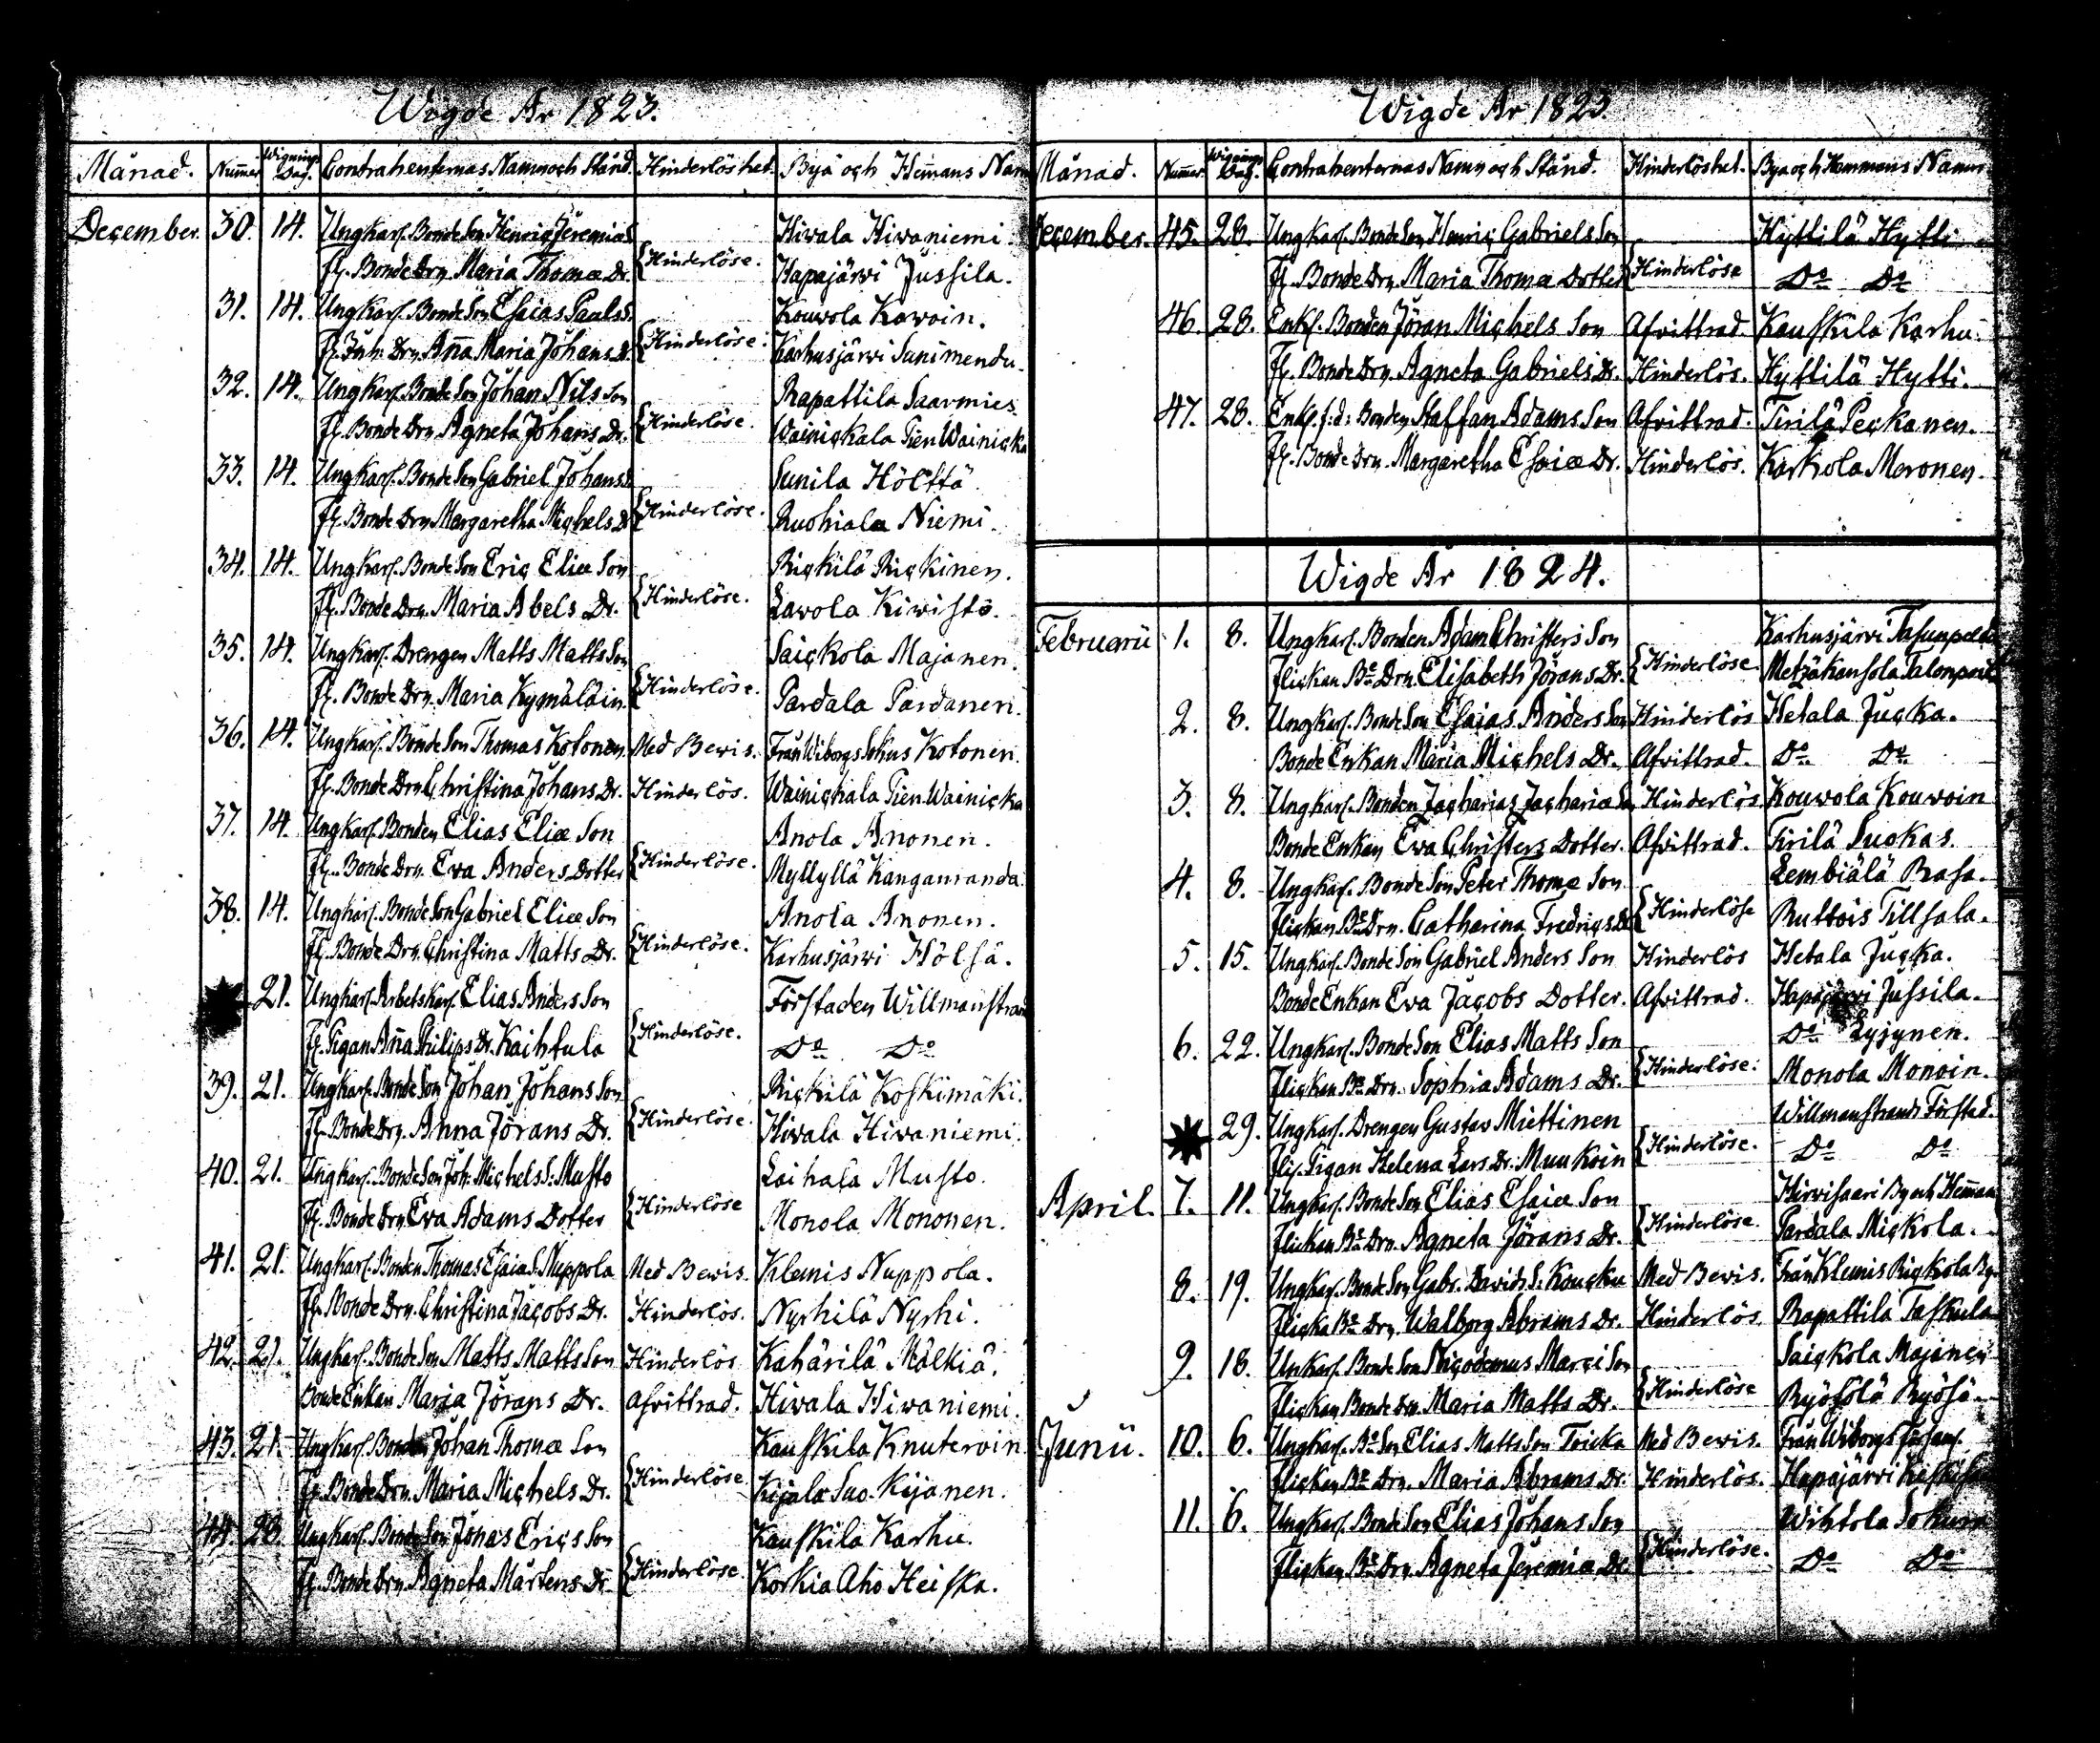 Wigde År 1823.
Månad. Numer Wignings Dag. Contrahenternas Namn och Stånd. Hinderlöshet. Byä och Hemans Namn
December. 30. 14. Ungkarl. Bonde Son Henric Jeremiæ S. Hiwala Hiwaniemi.
fl. Bonde Drn Maria Thomæ Dr. Hinderlöse. Hapajärwi Jussila.
31. 14. Ungkarl. Bonde Son Esaias Pauls S. Kouvola Kawoin.
fl. Inh: Drn Anna Maria Johans Dr. Hinderlöse. Karhusjärwi Sunimendu.
32. 14. Ungkarl. Bonde Son Johan Nils Son Rapattila Saarmies.
fl. Bonde Drn Agneta Johans Dr. Hinderlöse. Wainickala Pien Wainicka
33. 14. Ungkarl. Bonde Son Gabriel Johans S. Sunila Hölttä.
fl. Bonde Drn Margaretha Michels Dr Hinderlöse. Ruohiala Niemi.
34. 14. Ungkarl. Bonde Son Eric Eliæ Son Rickilä Rickinen.
fl. Bonde Drn. Maria Abels Dr. Hinderlöse. Lavola Kiwistö.
35. 14. Ungkarl. Drengen Matts Matts Son Saickola Majanen.
fl. Bonde Drn. Maria Kymäläin. Hinderlöse. Pardala Pardanen.
36. 14. Ungkarl. Bonde Son Thomas Kotonen. Med Bewis. Från Wiborgs Sokns Kotonen.
fl. Bonde Drn Christina Johans Dr. Hinderlös. Wainickala Pien Wainicka
37. 14. Ungkarl. Bonden Elias Eliæ Son Anola Anonen.
fl. Bonde Drn. Eva Anders Dotter Hinderlöse. Myllyllä Kanganranda.
38. 14. Ungkarl. Bonde Son Gabriel Eliæ Son Anola Anonen.
fl. Bonde Drn. Christina Matts Dr. Hinderlöse. Karhusjärwi Hölsä.
21. Ungkarl. Arbetskarl. Elias Anders Son Förstaden Willmanstrand
fl. Pigan Anna Philips Dr. Kaihtula Hinderlöse. Do Do
39. 21. Ungkarl. Bonde Son Johan Johans Son Rickilä Koskimäki.
fl. Bonde Drn. Anna Jörans Dr. Hinderlöse. Hiwala Hiwaniemi.
40. 21. Ungkarl. Bonde Son Joh: Michels S: Musto Laihala Musto.
fl. Bonde Drn Eva Adams Dotter Hinderlöse Monola Mononen.
41. 21. Ungkarl. Bonden Thomas Esaiæ S. Nuppola Med Bewis. Klemis Nuppola.
fl. Bonde Drn. Christina Jacobs Dr. Hinderlös. Nyrhilä Nyrhi.
42. 21. Ungkarl. Bonde Son Matts Matts Son Hinderlös Kahärilä Mälkiä.
Bonde Enkan Maria Jörans Dr. Afvittrad. Hiwala Hiwaniemi.
43. 21. Ungkarl. Bonden Johan Thomæ Son Kauskila Knuteroin
fl. Bonde Drn. Maria Michels Dr. Hinderlöse. Kijala Suo. Kijanen.
44. 28. Ungkarl. Bonde Son Jonas Erics Son Kauskila Karhu.
fl. Bonde Drn. Agneta Mårtens Dr. Hinderlöse. Korkia Aho Heiska.
Wigde År 1823.
Månad. Numer. Wignings Dag. Contrahenternas Namn och Stånd. Hinderlöshet. Bya och Hemmans Namn
December. 45. 28. Ungkarl. Bonde Son Henric Gabriels Son Hyttilä Hytti
fl. Bonde Drn Maria Thomæ Dotter Hinderlöse Do Do
46. 28. Enkl. Bonden Jöran Michels Son Afvittrad. Kauskila Karhu.
fl. Bonde Drn. Agneta Gabriels Dr. Hinderlös. Hyttilä Hytti.
47. 28. Enkl. f:d: Bonden Staffan Adams Son Afvittrad. Tirilä Peckanen.
fl. Bonde Drn. Margaretha Esaiæ Dr. Hinderlös. Karkola Meronen.
Wigde År 1824.
Februarii 1. 8. Ungkarl. Bonden Adam Christers Son Karhusjärwi
Flickan Be Drn. Elisabeth Jörans Dr. Hinderlöse. Metzäkansola
2. 8. Ungkarl. Bonde Son Esaias Anders Son Hinderlös Hetala Jucka.
Bonde Enkan Maria Michels Dr. Afvittrad. Do Do
3. 8. Ungkarl. Bonden Zacharias Zachariæ Son Hinderlös Kouvola Kouvoin
Bonde Enkan Eva Christers Dotter. Afvittrad. Tirilä Suokas.
4. 8. Ungkarl. Bonde Son Peter Thome Son Lembiälä Rasa.
Flickan Be Drn. Catharina Fredrics Dr Hinderlöse Ruttois Tillsala.
5. 15. Ungkarl. Bonde Son Gabriel Anders Son Hinderlös Hetala Jucka.
Bonde Enkan Eva Jacobs Dotter. Afvittrad. Hapajärwi Jussila.
6. 22. Ungkarl. Bonde Son Elias Matts Son Do Lyjynen.
Flickan Be Drn. Sophia Adams Dr. Hinderlöse. Monola Monoin.
29. Ungkarl. Drengen Gustav Miettinen Willmanstrands Förstad.
Fli. Pigan Helena Lars Dr. Muukoin Hinderlöse. Do Do
April. 7. 11. Ungkarl. Bonde Son Elias Esaiæ Son Hirvisaari By och Heman
Flickan Be Drn. Agneta Jörans Dr. Hinderlöse. Pardala Mickola.
8. 19. Ungkar. Bonde Son Gabr. Davids S: Koucku Med Bevis. Från Klemis Rickola By.
Flicka Be Drn. Walborg Abrams Dr. Hinderlös. Rapattila Taskula
9. 18. Unkarl. Bonde Son Nicodemus Marci Son Saickola Majanen
Flickan Bonde Drn. Maria Matts Dr. Hinderlöse Ryösölä Ryösä.
Junii. 10. 6. Ungkarl. Be Son Elias Matts Son Toicka Med Bevis. Från Wiborgs
Flickan Be Drn. Maria Abrams Dr. Hinderlös. Hapajärvi
11. 6. Ungkarl. Bonde Son Elias Johans Son Wihtola
Flickan Be Drn. Agneta Jeremiæ Dr. Hinderlöse. Do Do